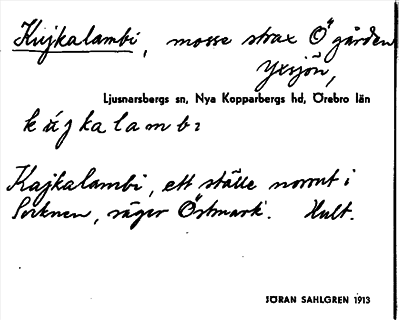 Kujkalambi, mosse strax Ö gården
Yxsjön,
Ljusnarsbergs sn, Nya Kopparbergs hd, Örebro län
kújkalambi
Kajkalambi, ett ställe norrut i
Socknen, säger Östmark. Hult.
JÖRAN SAHLGREN 1913